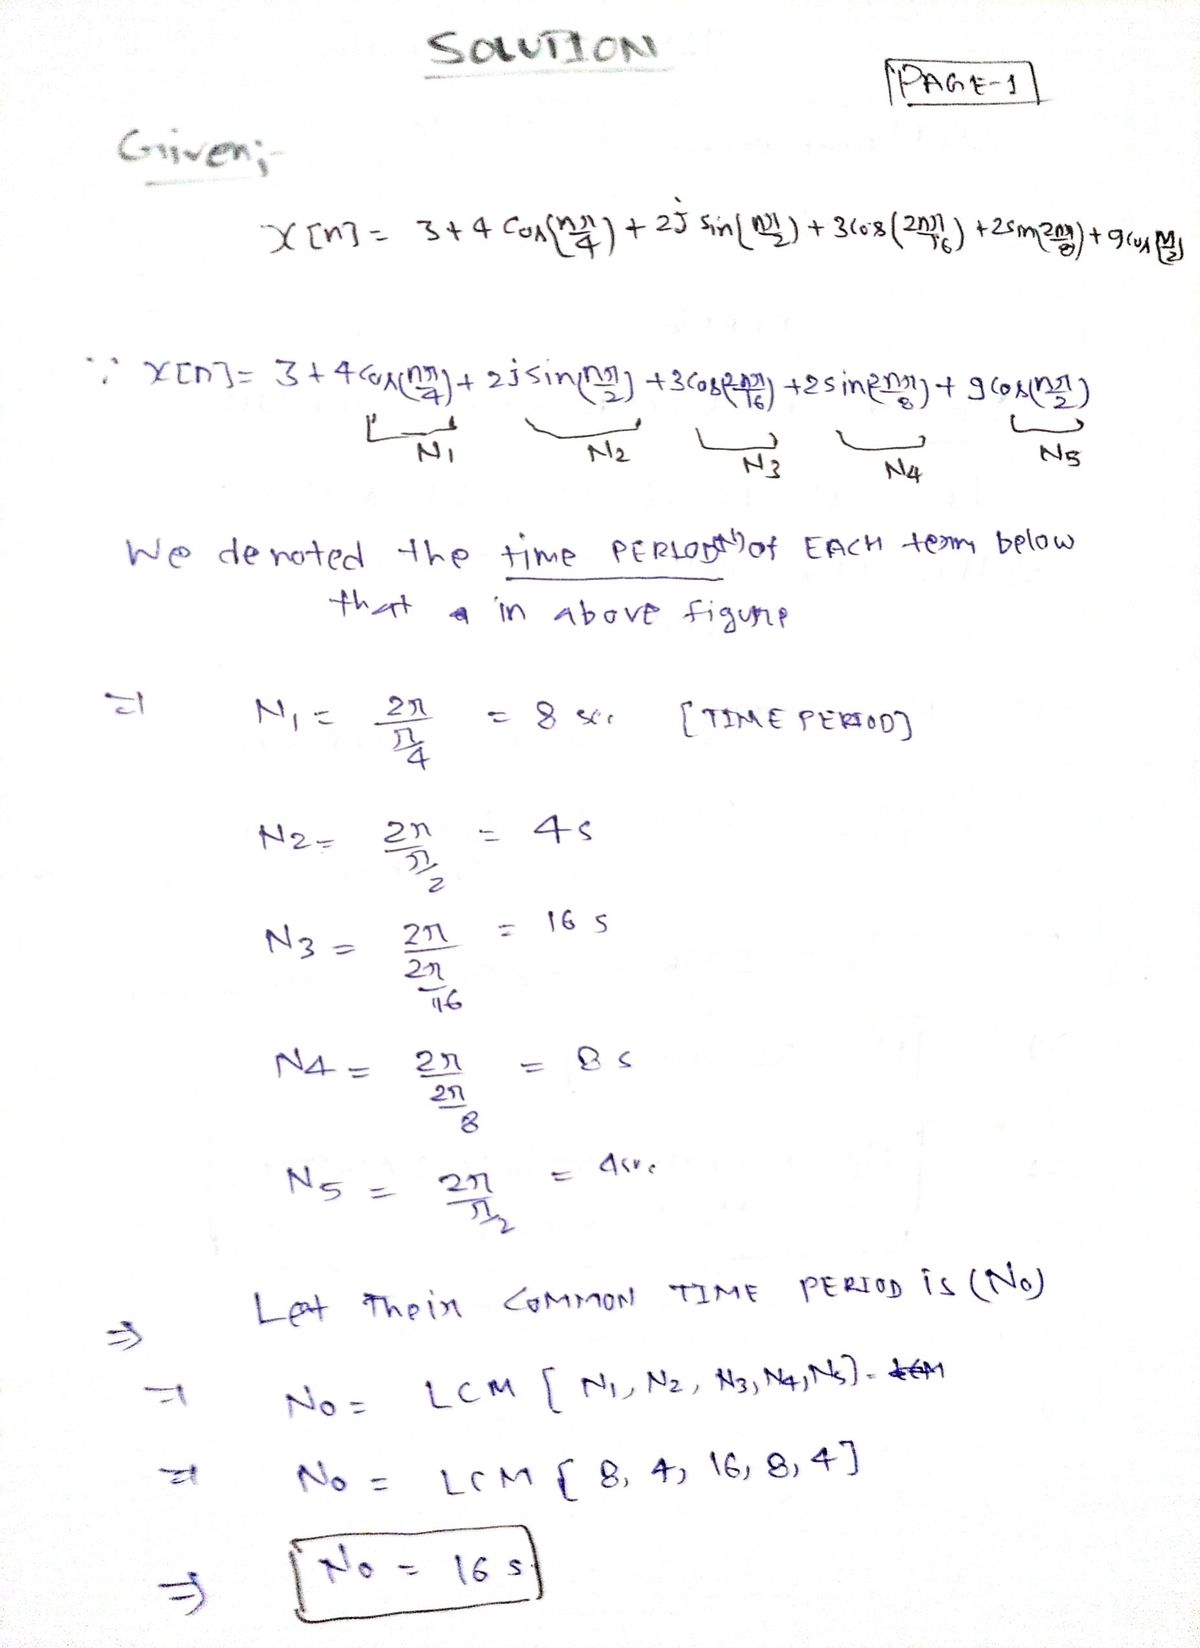 SOLUTION
PAGE-1
Given;-
x[n] = 3 + 4 Cos(nπ/4) + 2j sin(nπ/2) + 3cos(2nπ/16) + 2sin(2nπ/8) + 9cos(nπ/2)
∵ x[n] = 3 + 4cos(nπ/4) + 2j sin(nπ/2) + 3cos(2nπ/16) + 2sin(2nπ/8) + 9cos(nπ/2)
N1 N2 N3 N4 N5
We denoted the time PERIOD(N) of EACH term below
that in above figure
⇒ N1 = 2π/(π/4) = 8 sec [TIME PERIOD]
N2 = 2π/(π/2) = 4s
N3 = 2π/(2π/16) = 16 s
N4 = 2π/(2π/8) = 8 s
N5 = 2π/(π/2) = 4sec
⇒ Let Their COMMON TIME PERIOD is (No)
⇒ No = LCM [N1, N2, N3, N4, N5] =
⇒ No = LCM [8, 4, 16, 8, 4]
⇒ No = 16 s